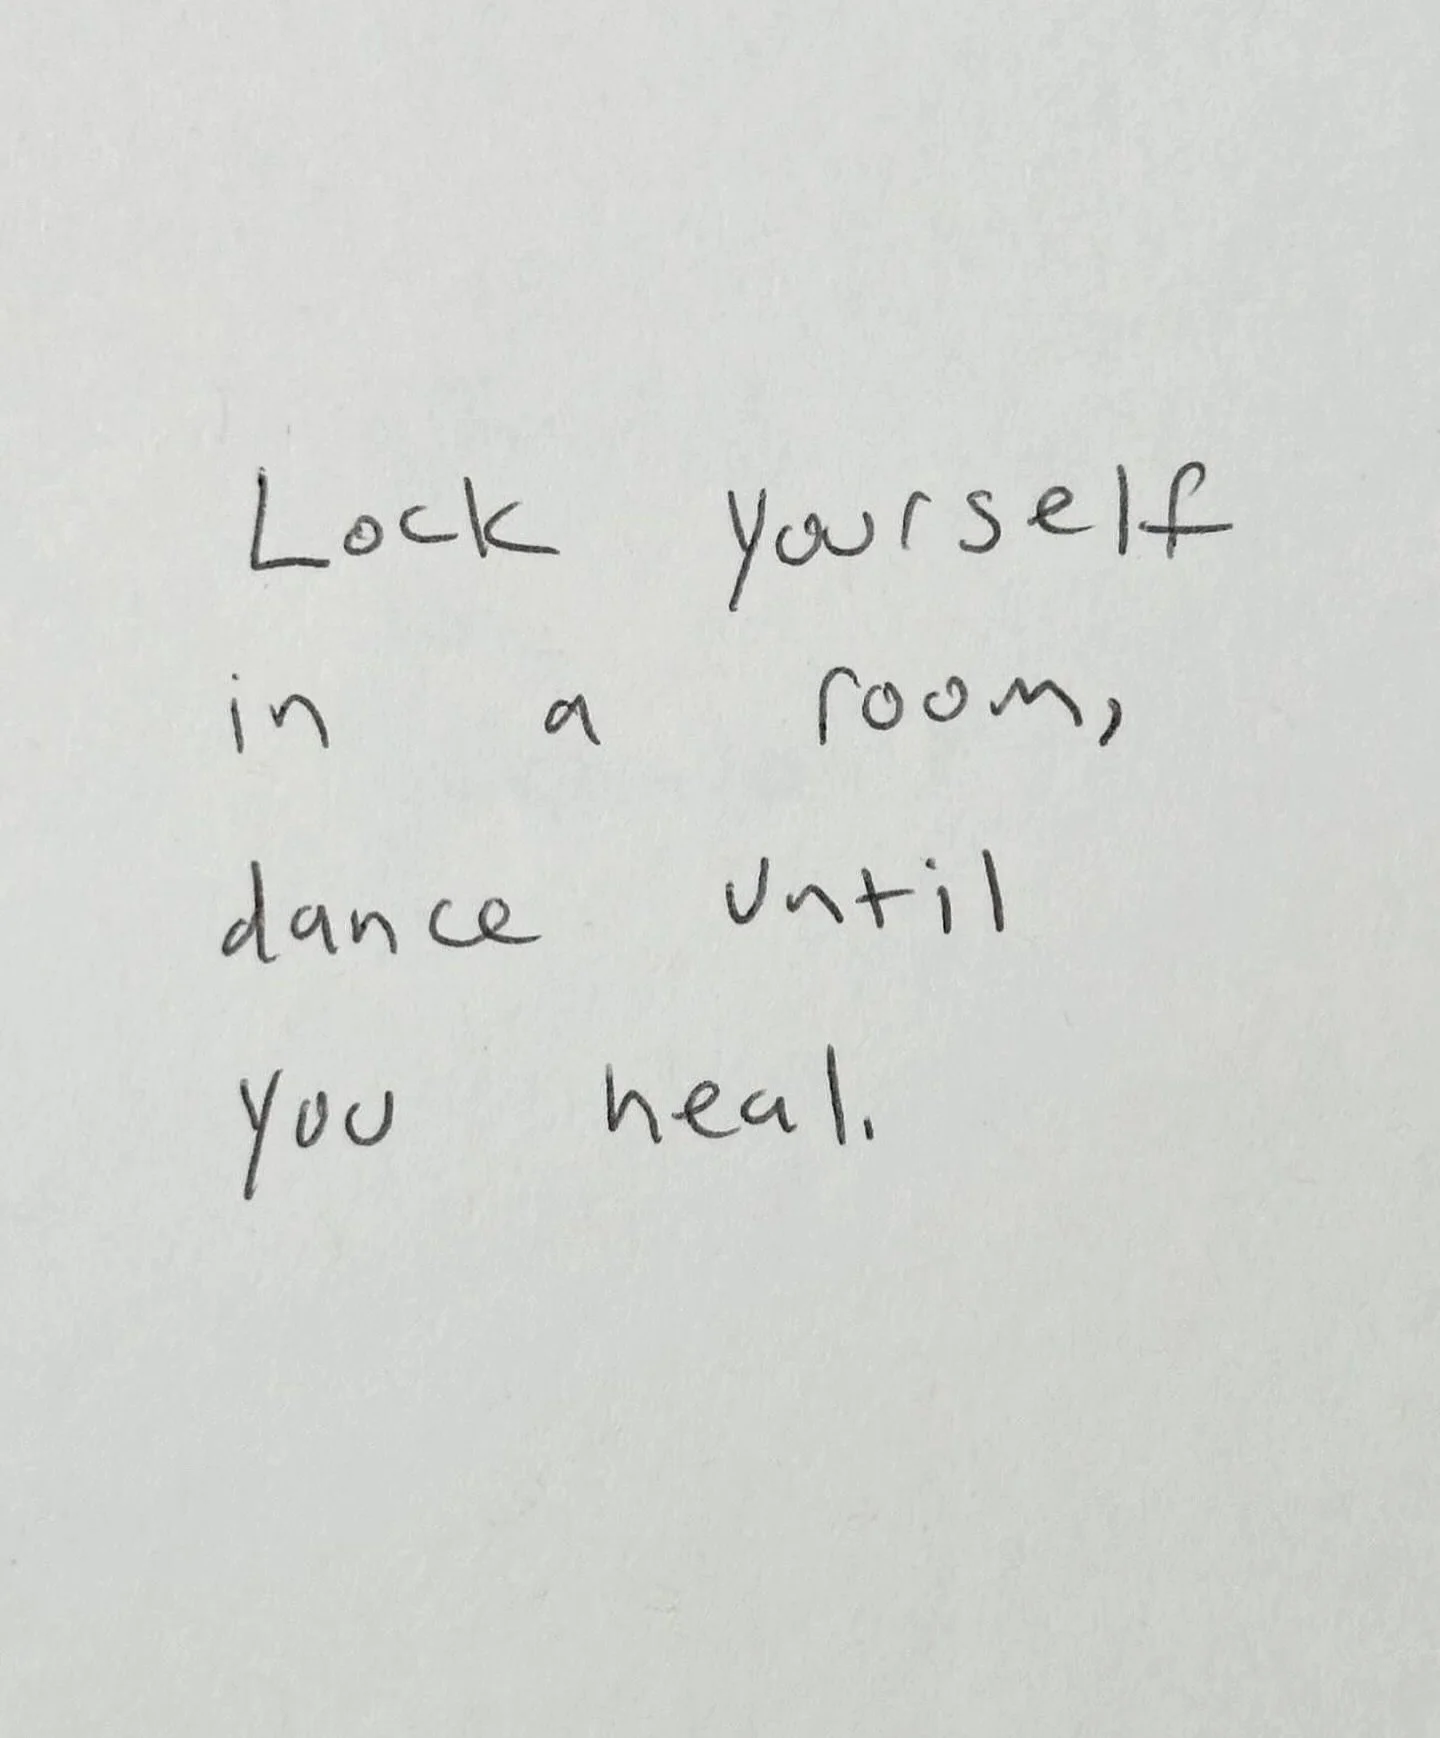 Lock yourself
in a room,
dance until
you heal.